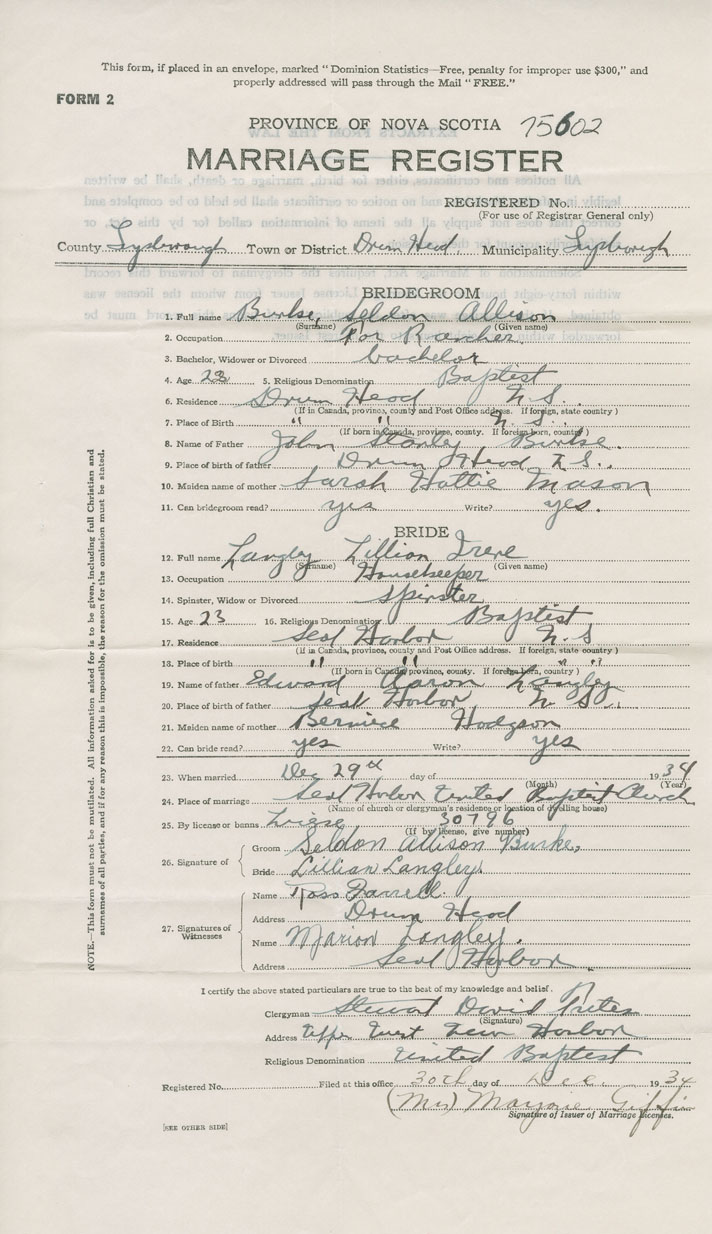 This form, if placed in an envelope, marked "Dominion Statistics—Free, penalty for improper use $300," and
properly addressed will pass through the Mail "FREE."
FORM 2
PROVINCE OF NOVA SCOTIA 75602
MARRIAGE REGISTER
REGISTERED No.
(For use of Registrar General only)
County Town or District Drum Head. Municipality
BRIDEGROOM
1. Full name Burke, Seldon Allison
(Surname) (Given name)
2. Occupation Fox Rancher.
3. Bachelor, Widower or Divorced bachelor
4. Age 23 5. Religious Denomination Baptist
6. Residence Drum Head N.S.
(If in Canada, province, county and Post Office address. If foreign, state country)
7. Place of Birth " " N.S.
(If born in Canada, province, county. If foreign born, country)
8. Name of Father John Stanley Burke.
9. Place of birth of father Drum Head N.S.
10. Maiden name of mother Sarah Hattie Mason
11. Can bridegroom read? yes Write? yes.
BRIDE
12. Full name Langley Lillian Irene
(Surname) (Given name)
13. Occupation Housekeeper
14. Spinster, Widow or Divorced spinster
15. Age 23 16. Religious Denomination Baptist
17. Residence Seal Harbor N.S
(If in Canada, province, county and Post Office address. If foreign, state country)
18. Place of birth " " " "
(If born in Canada, province, county. If foreign born, country)
19. Name of father Edward Aaron Langley
20. Place of birth of father Seal Harbor N.S.
21. Maiden name of mother Bernice Hodgson
22. Can bride read? yes Write? yes
23. When married Dec 29th day of 1934
(Month) (Year)
24. Place of marriage Seal Harbor United Baptist Church
(Name of church or clergyman's residence or location of dwelling house)
25. By license or banns 30796
(If by license, give number)
26. Signature of
Groom Seldon Allison Burke,
Bride Lillian Langley.
27. Signatures of Witnesses
Name Ross Farrell.
Address Drum Head
Name Marion Langley.
Address Seal Harbor.
I certify the above stated particulars are true to the best of my knowledge and belief.
Clergyman David
(Signature)
Address Harbor
Religious Denomination United Baptist
Registered No. Filed at this office 30th day of Dec. 1934
(Mrs) Marjorie
Signature of Issuer of Marriage Licenses.
[SEE OTHER SIDE]
NOTE.—This form must not be mutilated. All information asked for is to be given, including full Christian and
surnames of all parties, and if for any reason this is impossible, the reason for the omission must be stated.